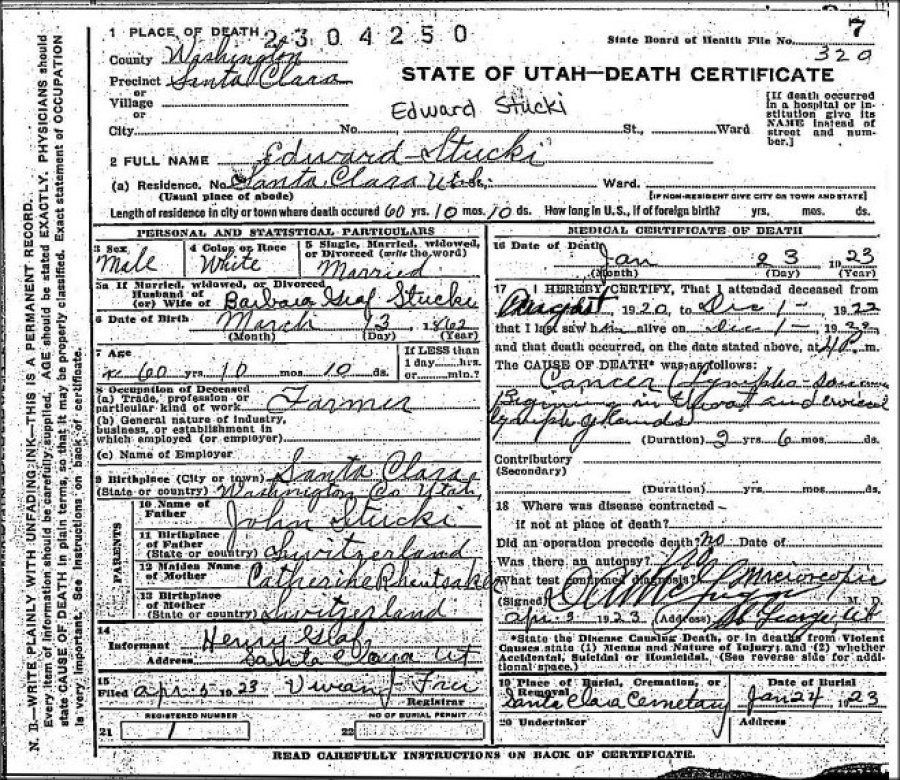 1 PLACE OF DEATH 2304250
State Board of Health File No. 7
320
County Washington
Precinct Santa Clara
or
Village
or
STATE OF UTAH—DEATH CERTIFICATE
Edward Stucki
[If death occurred in a hospital or institution give its NAME instead of street and number.]
City No. St., Ward
2 FULL NAME Edward Stucki
(a) Residence. No. Santa Clara Utah St., Ward.
(Usual place of abode) [IF NON-RESIDENT GIVE CITY OR TOWN AND STATE]
Length of residence in city or town where death occured 60 yrs. 10 mos. 10 ds. How long in U.S., if of foreign birth? yrs. mos. ds.
PERSONAL AND STATISTICAL PARTICULARS
3 Sex Male
4 Color or Race White
5 Single, Married, widowed, or Divorced (write the word) Married
5a If Married, widowed, or Divorced
Husband of
(or) Wife of Barbara Graf Stucki
6 Date of Birth March 13 1862
(Month) (Day) (Year)
7 Age 60 yrs. 10 mos. 10 ds.
If LESS than
1 day hrs.
or min.?
8 Occupation of Deceased
(a) Trade, profession or
particular kind of work Farmer
(b) General nature of industry,
business, or establishment in
which employed (or employer)
(c) Name of Employer
9 Birthplace (City or town) Santa Clara
(State or country) Washington Co Utah
PARENTS
10 Name of
Father John Stucki
11 Birthplace
of Father
(State or country) Switzerland
12 Maiden Name
of Mother Catherine
13 Birthplace
of Mother
(State or country) Switzerland
14
Informant Henry Graf
Address Santa Clara Ut
15
Filed Apr. 5 1923 Vivian J. Frei
Registrar
REGISTERED NUMBER
21 1
NO OF BURIAL PERMIT
22
MEDICAL CERTIFICATE OF DEATH
16 Date of Death Jan 23 1923
(Month) (Day) (Year)
17 I HEREBY CERTIFY, That I attended deceased from
August, 1920, to Dec 1-, 1922
that I last saw him alive on Dec 1-, 1922
and that death occurred, on the date stated above, at 4 P. m.
The CAUSE OF DEATH* was as follows:
Cancer (Lympho-sarcoma
Beginning in throat and cervical
lymph glands
(Duration) 2 yrs. 6 mos. ds.
Contributory
(Secondary)
(Duration) yrs. mos. ds.
18 Where was disease contracted
if not at place of death?
Did an operation precede death? no Date of
Was there an autopsy? No
What test confirmed diagnosis? Microscopic
(Signed) M. D.
Apr. 2 1923 (Address) St George Ut
*State the Disease Causing Death, or in deaths from Violent
Causes state (1) Means and Nature of Injury; and (2) whether
Accidental, Suicidal or Homicidal. (See reverse side for additional space.)
19 Place of Burial, Cremation, or
Removal
Santa Clara Cemetary
Date of Burial
Jan 24 1923
20 Undertaker
Address
READ CAREFULLY INSTRUCTIONS ON BACK OF CERTIFICATE.
N. B.—WRITE PLAINLY WITH UNFADING INK—THIS IS A PERMANENT RECORD.
Every item of information should be carefully supplied. AGE should be stated EXACTLY. PHYSICIANS should
state CAUSE OF DEATH in plain terms, so that it may be properly classified. Exact statement of OCCUPATION
is very important. See Instructions on back of certificate.